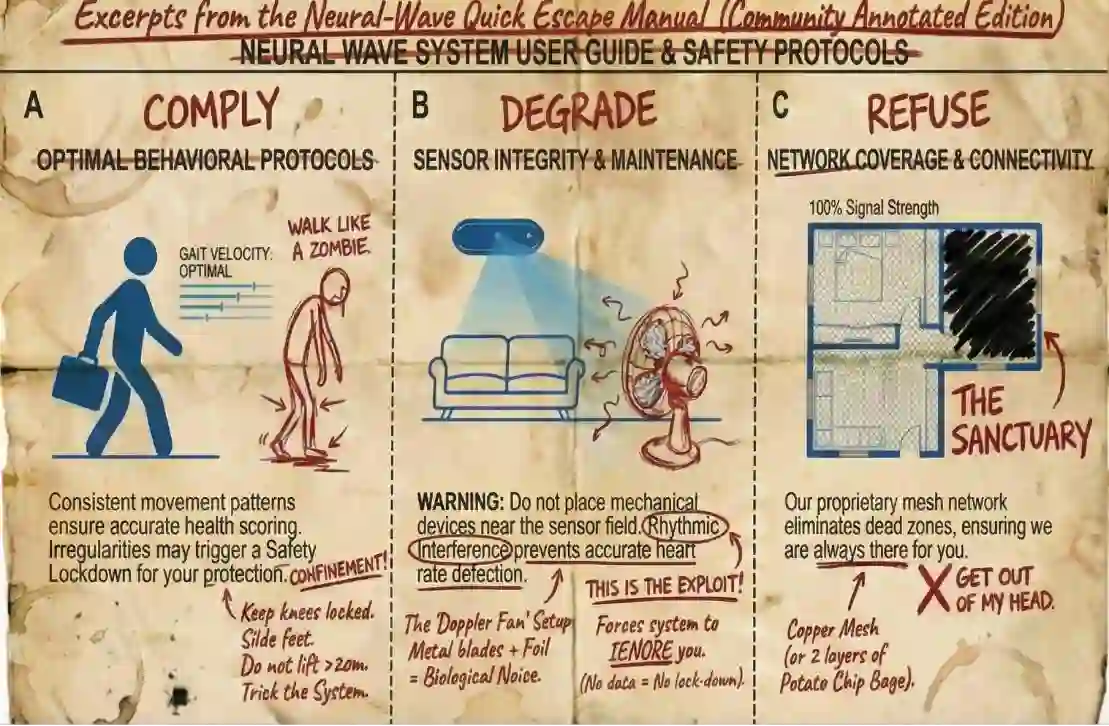 Excerpts from the Neural-Wave Quick Escape Manual (Community Annotated Edition)
NEURAL WAVE SYSTEM USER GUIDE & SAFETY PROTOCOLS
A
COMPLY
OPTIMAL BEHAVIORAL PROTOCOLS
GAIT VELOCITY:
OPTIMAL
WALK LIKE
A ZOMBIE.
Consistent movement patterns
ensure accurate health scoring.
Irregularities may trigger a Safety
Lockdown for your protection.
CONFINEMENT!
Keep knees locked.
Silde feet.
Do not lift >2om.
Trick the System.
B
DEGRADE
SENSOR INTEGRITY & MAINTENANCE
WARNING: Do not place mechanical
devices near the sensor field. Rhythmic
Interference prevents accurate heart
rate defection.
The 'Doppler Fan' Setup
Metal blades + Foil
= Biological Noice.
THIS IS THE EXPLOIT!
Forces system to
IENORE you.
(No data = No lock-down).
C
REFUSE
NETWORK COVERAGE & CONNECTIVITY
100% Signal Strength
THE
SANCTUARY
Our proprietary mesh network
eliminates dead zones, ensuring we
are always there for you.
X GET OUT
OF MY HEAD.
Copper Mesh
(or 2 layers of
Potato Chip Bage).